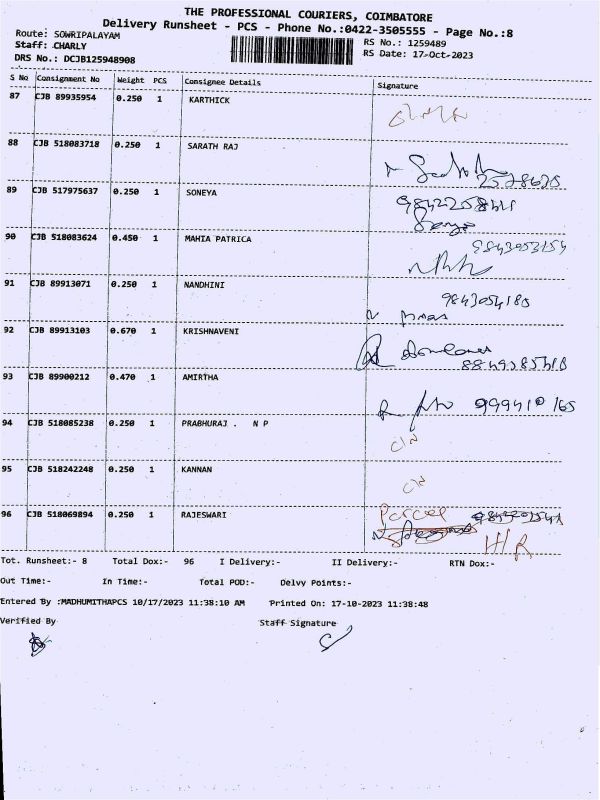 THE PROFESSIONAL COURIERS, COIMBATORE
Delivery Runsheet - PCS - Phone No.:0422-3505555 - Page No.:8
Route: SOWRIPALAYAM
RS No.: 1259489
Staff: CHARLY
RS Date: 17-Oct-2023
DRS No.: DCJB125948908
S No Consignment No Weight PCS Consignee Details Signature
87 CJB 89935954 0.250 1 KARTHICK
88 CJB 518083718 0.250 1 SARATH RAJ
89 CJB 517975637 0.250 1 SONEYA
90 CJB 518083624 0.450 1 MAHIA PATRICA
9843053154
91 CJB 89913071 0.250 1 NANDHINI
9843054185
92 CJB 89913103 0.670 1 KRISHNAVENI
93 CJB 89900212 0.470 1 AMIRTHA
94 CJB 518085238 0.250 1 PRABHURAJ . N P
C/N
95 CJB 518242248 0.250 1 KANNAN
C/N
96 CJB 518069894 0.250 1 RAJESWARI
Parcel
H/R
Tot. Runsheet:- 8 Total Dox:- 96 I Delivery:- II Delivery:- RTN Dox:-
Out Time:- In Time:- Total POD:- Delvy Points:-
Entered By :MADHUMITHAPCS 10/17/2023 11:38:10 AM Printed On: 17-10-2023 11:38:48
Verified By Staff Signature